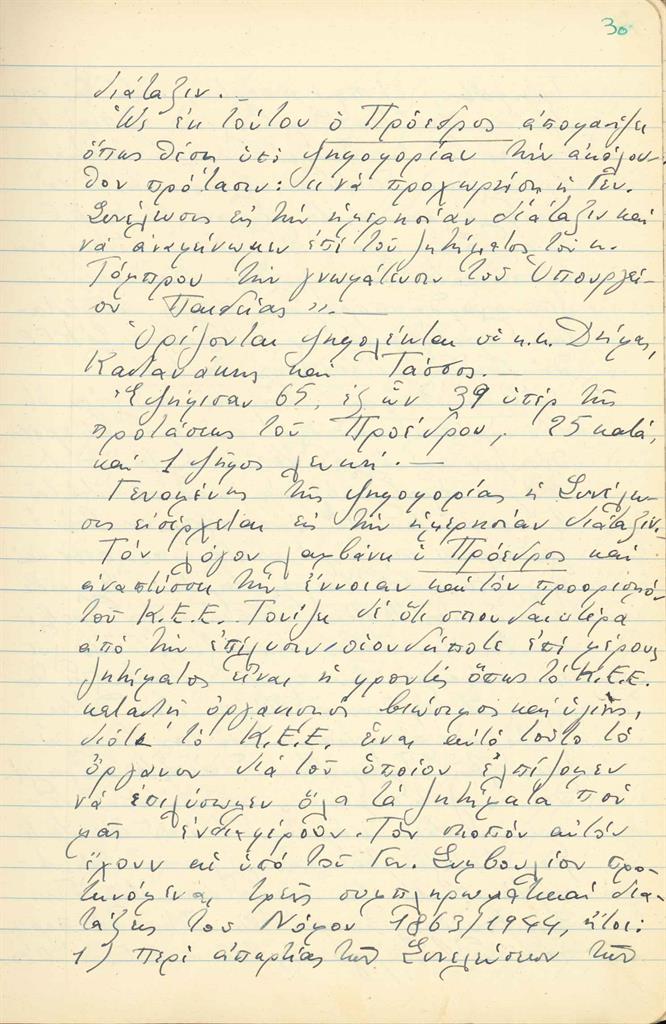 30
διάταξιν. —
Ὡς ἐκ τούτου ὁ Πρόεδρος ἀποφασίζει
ὅπως θέση ὑπὸ ψηφοφορίαν τὴν ἀκόλου-
θον πρότασιν: "νὰ προχωρήση ἡ Γεν.
Συνέλευσις εἰς τὴν ἡμερησίαν διάταξιν καὶ
νὰ ἀναμείνωμεν ἐπὶ τοῦ ζητήματος τοῦ κ.
Τόμπρου τὴν γνωμάτευσιν τοῦ Ὑπουργεί-
ου Παιδείας". —
Ὁρίζονται ψηφολέκται οἱ κ.κ. Δήμας,
Καστανάκης καὶ Τάσσος. —
Ἐψήφισαν 65, ἐξ ὧν 39 ὑπὲρ τῆς
προτάσεως τοῦ Προέδρου, 25 κατά,
καὶ 1 ψῆφος λευκή. —
Γενομένης τῆς ψηφοφορίας ἡ Συνέλευ-
σις εἰσέρχεται εἰς τὴν ἡμερησίαν διάταξιν. —
Τὸν λόγον λαμβάνει ὁ Πρόεδρος καὶ
ἀναπτύσσει τὴν ἔννοιαν καὶ τὸν προορισμὸν
τοῦ Κ.Ε.Ε. Τονίζει δὲ ὅτι σπουδαιοτέρα
ἀπὸ τὴν ἐπίλυσιν οἱουδήποτε ἐπὶ μέρους
ζητήματος εἶναι ἡ φροντὶς ὅπως τὸ Κ.Ε.Ε.
καταστῆ ὀργανισμὸς βιώσιμος καὶ ὑγιής,
διότι τὸ Κ.Ε.Ε. εἶναι αὐτὸ τοῦτο τὸ
ὄργανον διὰ τοῦ ὁποίου ἐλπίζομεν
νὰ ἐπιλύσωμεν ὅλα τὰ ζητήματα ποὺ
μᾶς ἐνδιαφέρουν. Τὸν σκοπὸν αὐτὸν
ἔχουν αἱ ὑπὸ τοῦ Γεν. Συμβουλίου προ-
τεινόμεναι τρεῖς συμπληρωματικαὶ δια-
τάξεις τοῦ Νόμου 1863/1944, ἤτοι:
1) Περὶ ἀπαρτίας τῶν Συνελεύσεων τῶν